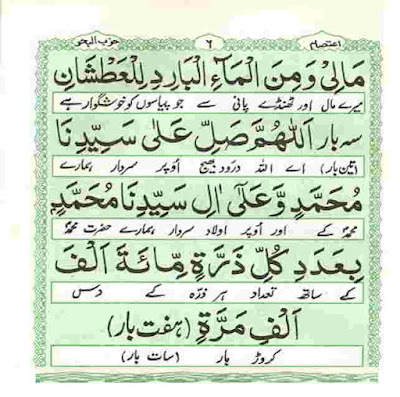 اعتصام ٦ حزب البحر
مَالِیْ وَمِنَ الْمَآءِ الْبَارِدِ لِلْعَطْشَانِ
میرے مال اور ٹھنڈے پانی سے جو پیاسوں کو خوشگوار ہے
سہ بار اَللّٰهُمَّ صَلِّ عَلٰی سَیِّدِنَا
(تین بار) اے اللہ درود بھیج اُوپر سردار ہمارے
مُحَمَّدٍ وَّعَلٰٓی اٰلِ سَیِّدِنَا مُحَمَّدٍ
محمدؐ کے اور اُوپر اولاد سردار ہمارے حضرت محمدؐ
بِعَدَدِ کُلِّ ذَرَّةٍ مِّائَةَ اَلْفَ
کے ساتھ تعداد ہر ذرّہ کے دس
اَلْفِ مَرَّةٍ (ہفت بار)
کروڑ بار (سات بار)